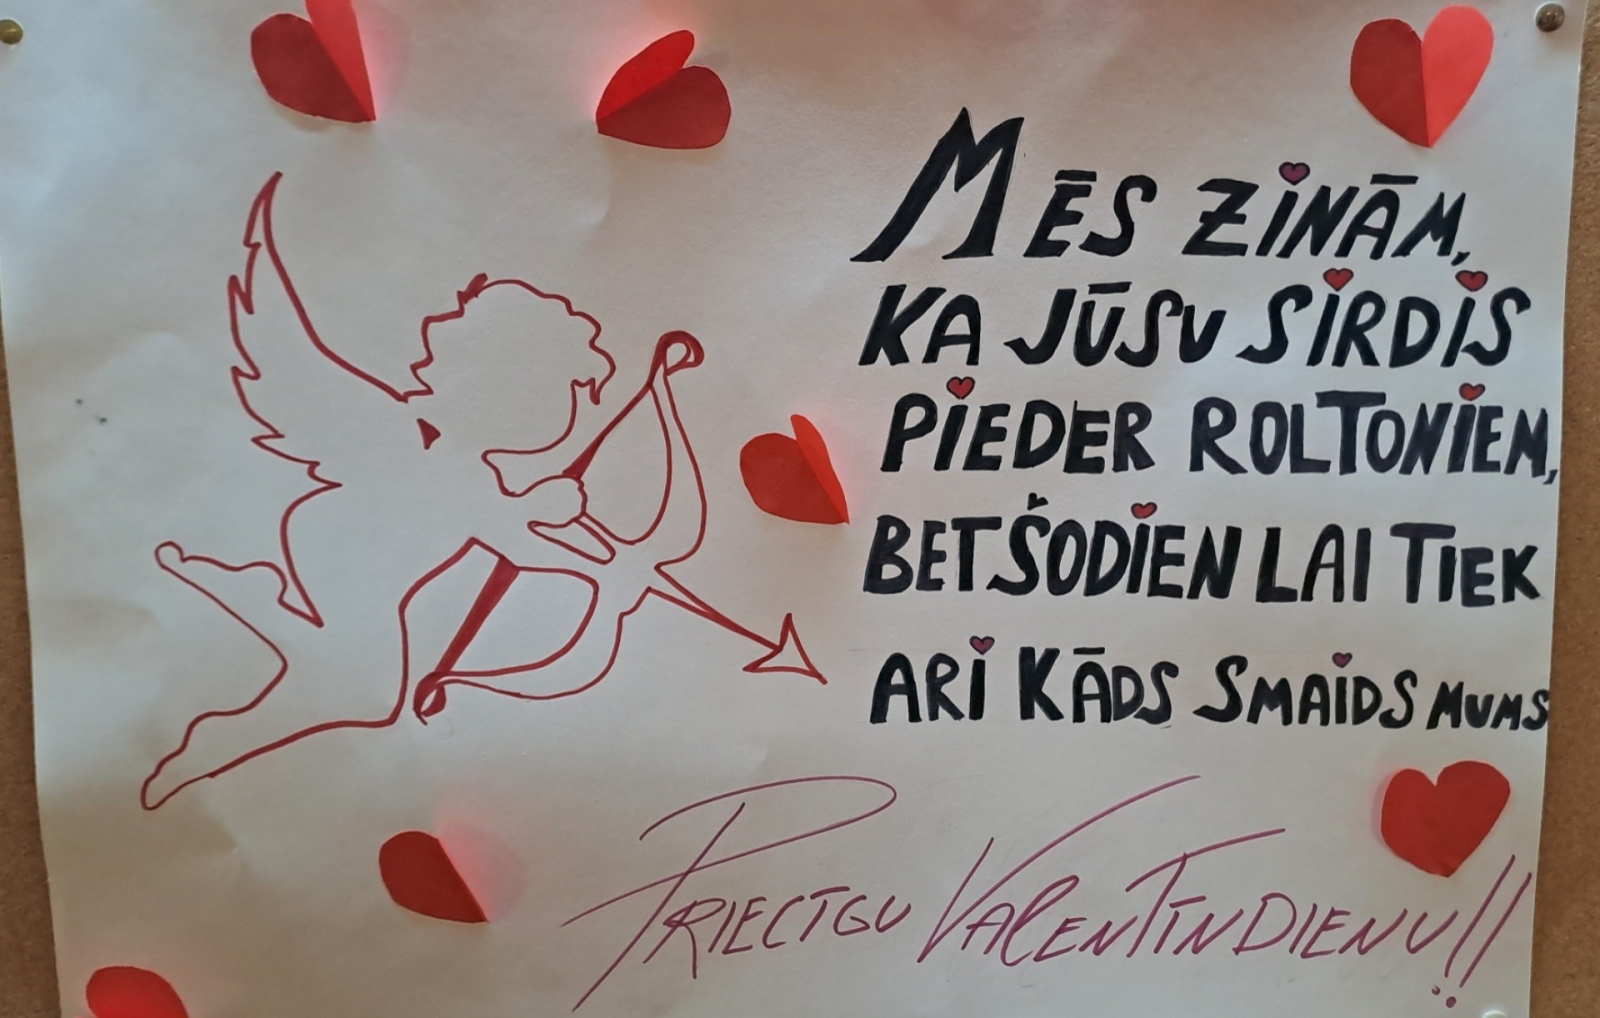 MĒS ZINĀM,
KA JŪSU SIRDIS
PIEDER ROLTONIEM,
BET ŠODIEN LAI TIEK
ARI KĀDS SMAIDS MUMS
PRIECĪGU VALENTĪNDIENU!!